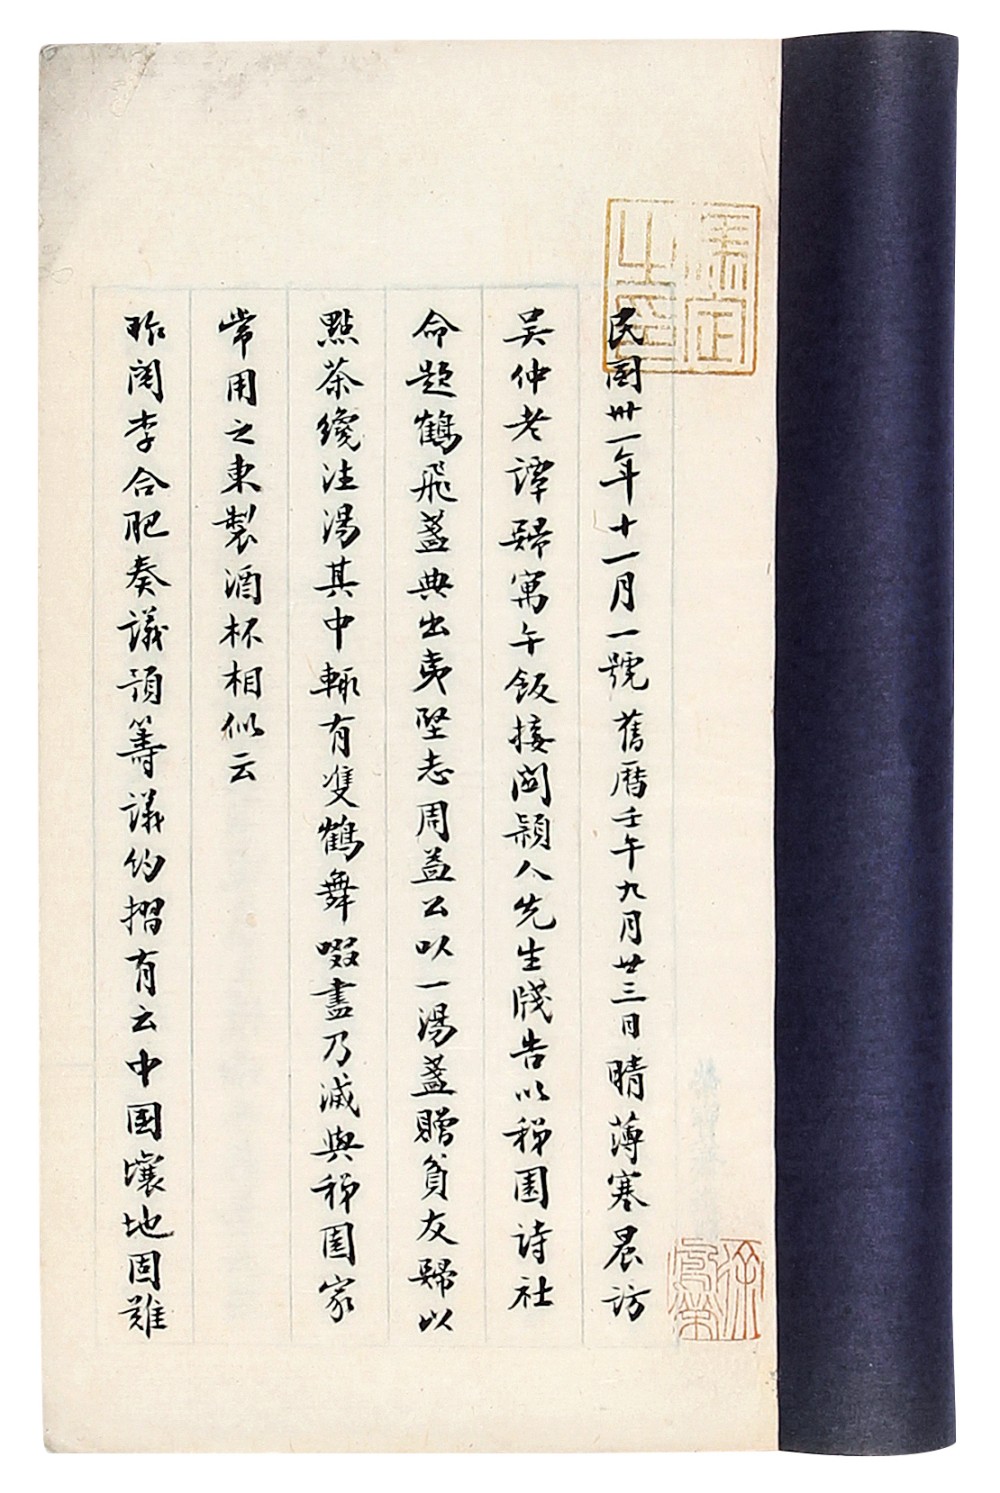 民國卅一年十一月一號舊曆壬午九月廿三日晴薄寒晨訪
吴仲老譚歸寓午飯接關穎人先生牋告以稊園詩社
命題鶴飛盞典出夷堅志周益公以一湯盞贈貧友歸以
點茶纔注湯其中輒有雙鶴舞啜盡乃滅與稊園家
常用之東製酒杯相似云
昨閱李合肥奏議預籌議約摺有云中國壤地固難